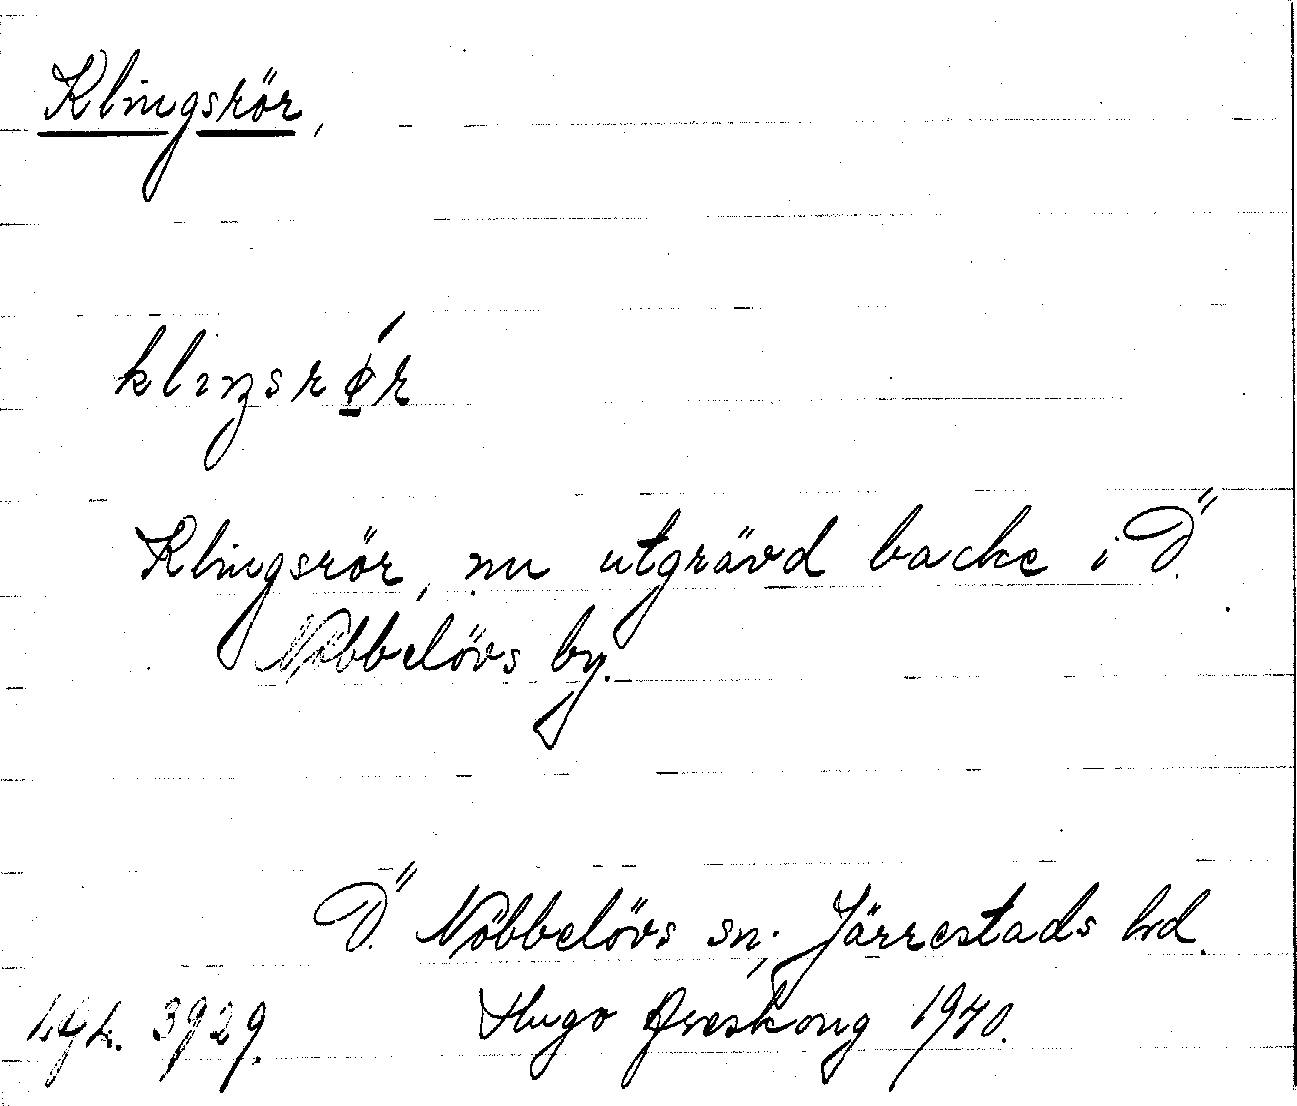 Klingsrör,
klıŋsrǿ̱r
Klingsrör, nu utgrävd backe i Ö.
Nöbbelövs by.
Ö. Nöbbelövs sn; Järrestads hd.
3929. Hugo Areskoug 1940.